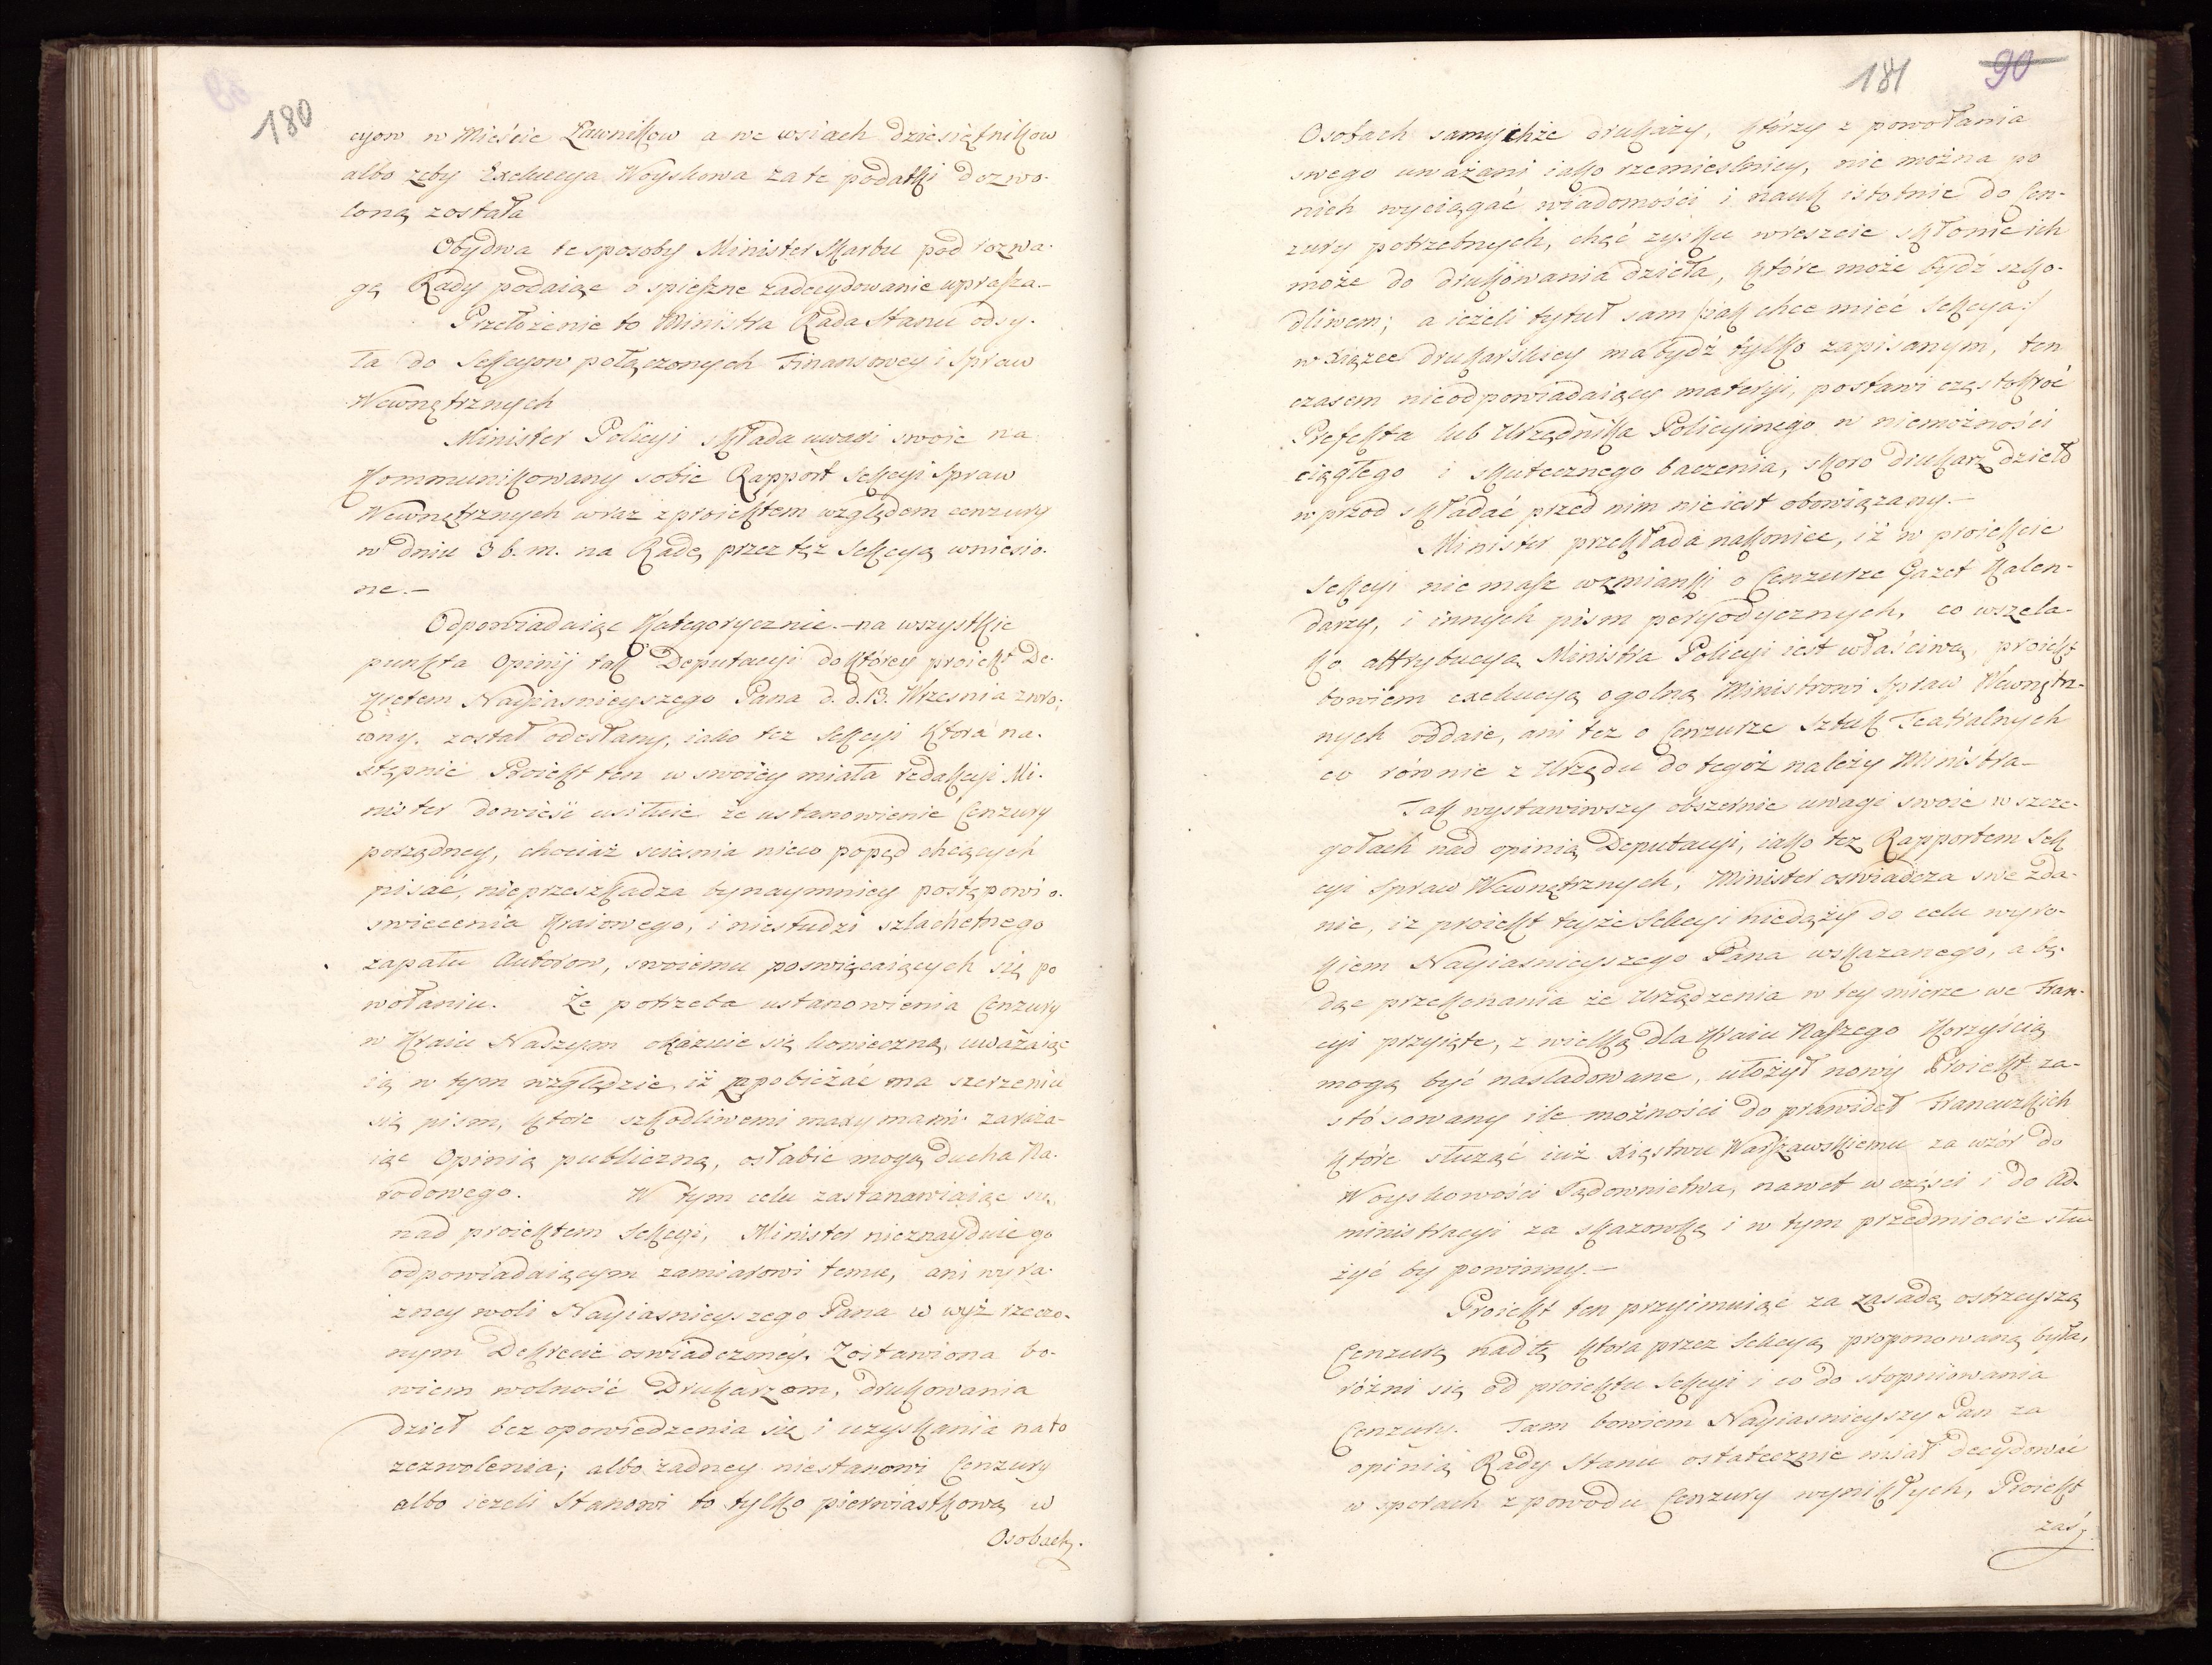 180
cyow w Mieście Ławnikow a we wsiach dziesiętnikow
albo żeby Exekucya Woyskowa za te podatki dozwo-
loną została
Obydwa te sposoby Minister Skarbu pod rozwa-
gę Rady podaiąc o spieszne zadecydowanie uprasza.—
Przełożenie to Ministra Rada Stanu odsy-
ła do Sekcyow połączonych Finansowey i Spraw
Wewnętrznych
Minister Policyi składa uwagi swoie na
Kommunikowany sobie Rapport Sekcyi Spraw
Wewnętrznych wraz z proiektem względem cenzury
w dniu 3 b. m. na Radę przez tęż Sekcyą wniesio-
ne.—
Odpowiadaiąc Kategorycznie.— na wszystkie
punkta Opinij tak Deputacyi do którey proiekt De-
kretem Nayiasnieyszego Pana d. d. 13. Wrzesnia zwro-
cony. został odesłany, iako tez Sekcyi Ktora na-
stępnie Proiekt ten w swoiey miała redakcyi Mi-
nister dowieść usiłuie że ustanowienie Cenzury
porządney, chociaż sciesnia nieco popęd chcących
pisać, nieprzeszkadza bynaymniey postępowi o-
swiecenia Kraiowego, i niestudzi szlachetnego
zapału Autorow, swoiemu poswięcaiących się po
wołaniu. Że potrzeba ustanowienia Cenzury
w Kraiu Naszym okazuie się konieczną, uważaiąc
ią w tym względzie, iż zapobieżać ma szerzeniu
się pism, ktore szkodliwemi maxymami zaraża-
iąc Opinią publiczną, osłabić mogą ducha Na-
rodowego. W tym celu zastanawiaiąc się
nad proiektem Sekcyi, Minister nieznayduie go
odpowiadaiącym zamiarowi temu, ani wyra-
zney woli Nayiasnieyszego Pana w wyż rzeczo-
nym Dekrecie oswiadczoney. Zostawiona bo-
wiem wolność Drukarzom, drukowania
dzieł bez opowiedzenia się i uzyskania na to
zezwolenia; albo żadney niestanowi Cenzury
albo ieżeli Stanowi to tylko pierwiastkową w
Osobach.
181 90
Osobach samychże drukarzy, którzy z powołania
swego uważani iako rzemieslnicy, nie można po
nich wyciągać wiadomości i nauk istotnie do Cen-
zury potrzebnych, chęć zysku wreszcie skłonić ich
może do drukowania dzieła, które może bydź szko-
dliwem; a ieżeli tytuł sam /: iak chce mieć Sekcya :/
w Xiążce drukarskiey ma bydź tylko zapisanym, ten
czasem nieodpowiadaiący materyi, postawi częstokroć
Prefekta lub Urzędnika Policyinego w niemożności
ciągłego i skutecznego baczenia, skoro drukarz dzieło
wprzod składać przed nim nie iest obowiązany.—
Minister przekłada nakoniec, iż w proiekcie
Sekcyi nie masz wzmianki o Cenzurze Gazet Kalen-
darzy, i innych pism peryodycznych, co wszela-
ko attrybucyą Ministra Policyi iest właściwą, proiekt
bowiem exekucyą ogolną Ministrowi Spraw Wewnętrz-
nych oddaie, ani tez o Cenzurze Sztuk Teatralnych
co równie z Urzędu do tegoż należy Ministra—
Tak wystawiwszy obszernie uwagi swoie w szcze-
gołach nad opinią Deputacyi, iako tez Rapportem Sek
cyi Spraw Wewnętrznych, Minister oswiadcza swe zda-
nie, iz proiekt teyże Sekcyi niedąży do celu wyro-
kiem Nayiasnieyszego Pana wskazanego, a bę-
dąc przekonania że Urządzenia w tey mierze we Fran-
cyi przyięte, z wielką dla Kraiu Naszego Korzyścią
mogą być nasladowane, ułożył nowy Proiekt za-
stósowany ile możności do prawideł Francuzkich
które służąc iuż Xięstwu Warszawskiemu za wzór do
Woyskowości Sądownictwa, nawet w części i do Ad-
ministracyi za skazowkę i w tym przedmiocie słu
żyć by powinny.—
Proiekt ten przyimuiąc za zasadę ostrzeyszą
Cenzurę nad tę ktora przez Sekcyą proponowaną była,
różni się od proiektu Sekcyi i co do stopniowania
Cenzury. Tam bowiem Nayiasnieyszy Pan za
opinią Rady Stanu ostatecznie miał decydować
w sporach z powodu Cenzury wynikłych, Proiekt
zaś